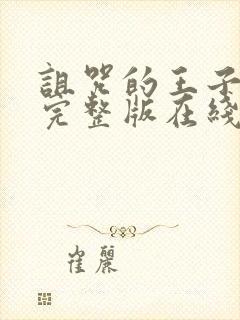 詛咒的王子
完整版在綫
崔麗